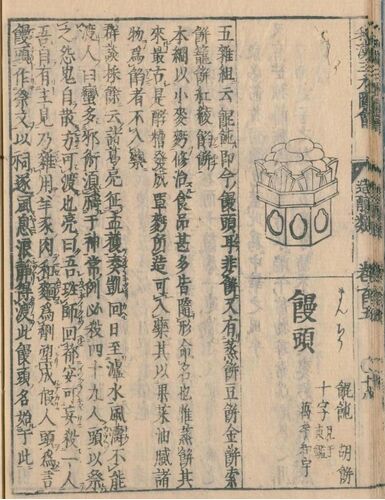 造釀類 卷百五
餛飩 胡餅
十字
まんぢう
饅頭
五雜組云餛飩即今饅頭耳非餅又有蒸餅豆餅金餅索
餅籠餅紅綾餡餅
本綱以小麥麪修治食品甚多皆隨形命名也惟蒸餅其
來最古是酵糟發成單麪所造可入藥其以果菜油膩諸
物爲餡者不入藥
群談採餘云諸葛亮征孟獲奏凱回日至瀘水風濤不能
渡人曰蠻多邪術須禱于神常例必殺四十九人頭以祭
之怨鬼自散方可渡也亮曰吾班師回都安可妄殺一人
吾自有主見乃雜用羊豕肉和麵爲劑塑成假人頭爲言
饅頭作祭文以祠遂風息浪靜得渡此饅頭名始于此